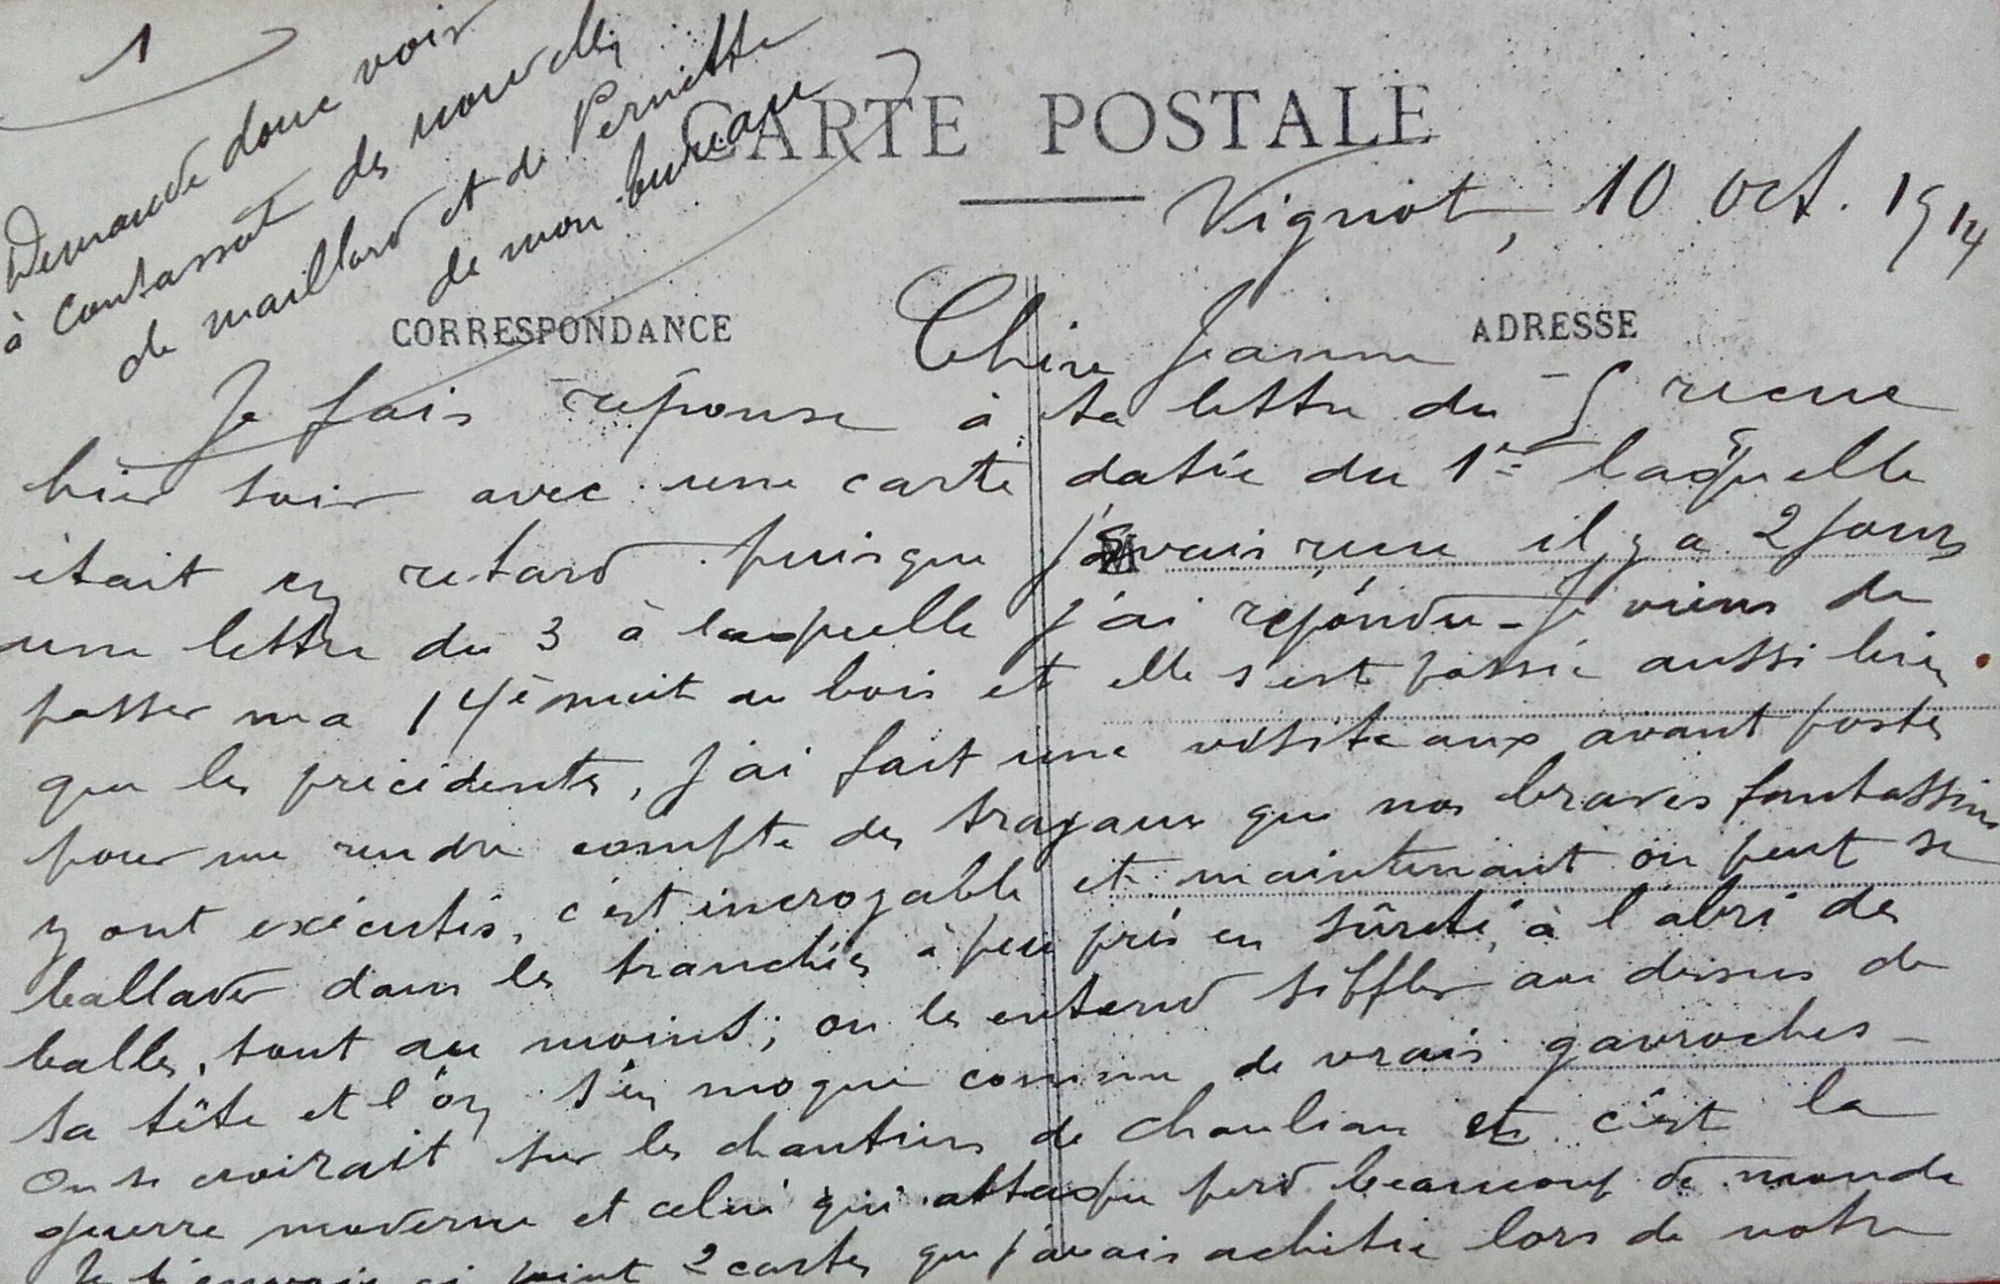 1
Demande donc voir
à Contassot des nouvelles
de Maillard et de Pernette
de mon bureau
CARTE POSTALE
Vignot, 10 oct. 1914
CORRESPONDANCE
ADRESSE
Chère Jeanne
Je fais réponse à ta lettre du 5 reçue
hier soir avec une carte datée du 1er laquelle
était en retard puisque j'avais reçu il y a 2 jours
une lettre du 3 à laquelle j'ai répondu - Je viens de
passer ma 14è nuit au bois et elle s'est passée aussi bien
que les précédentes, j'ai fait une visite aux avant postes
pour me rendre compte des travaux que nos braves fantassins
y ont exécutés, c'est incroyable et maintenant on peut se
ballader dans les tranchées à peu près en sûreté, à l'abri des
balles, tout au moins; on les entend siffler au dessus de
sa tête et l'on s'en moque comme de vrais gavroches -
On se croirait sur les chantiers de et c'est la
guerre moderne et celui qui attaque perd beaucoup de monde
Je t'envoie ci joint 2 cartes que j'avais achetée lors de notre